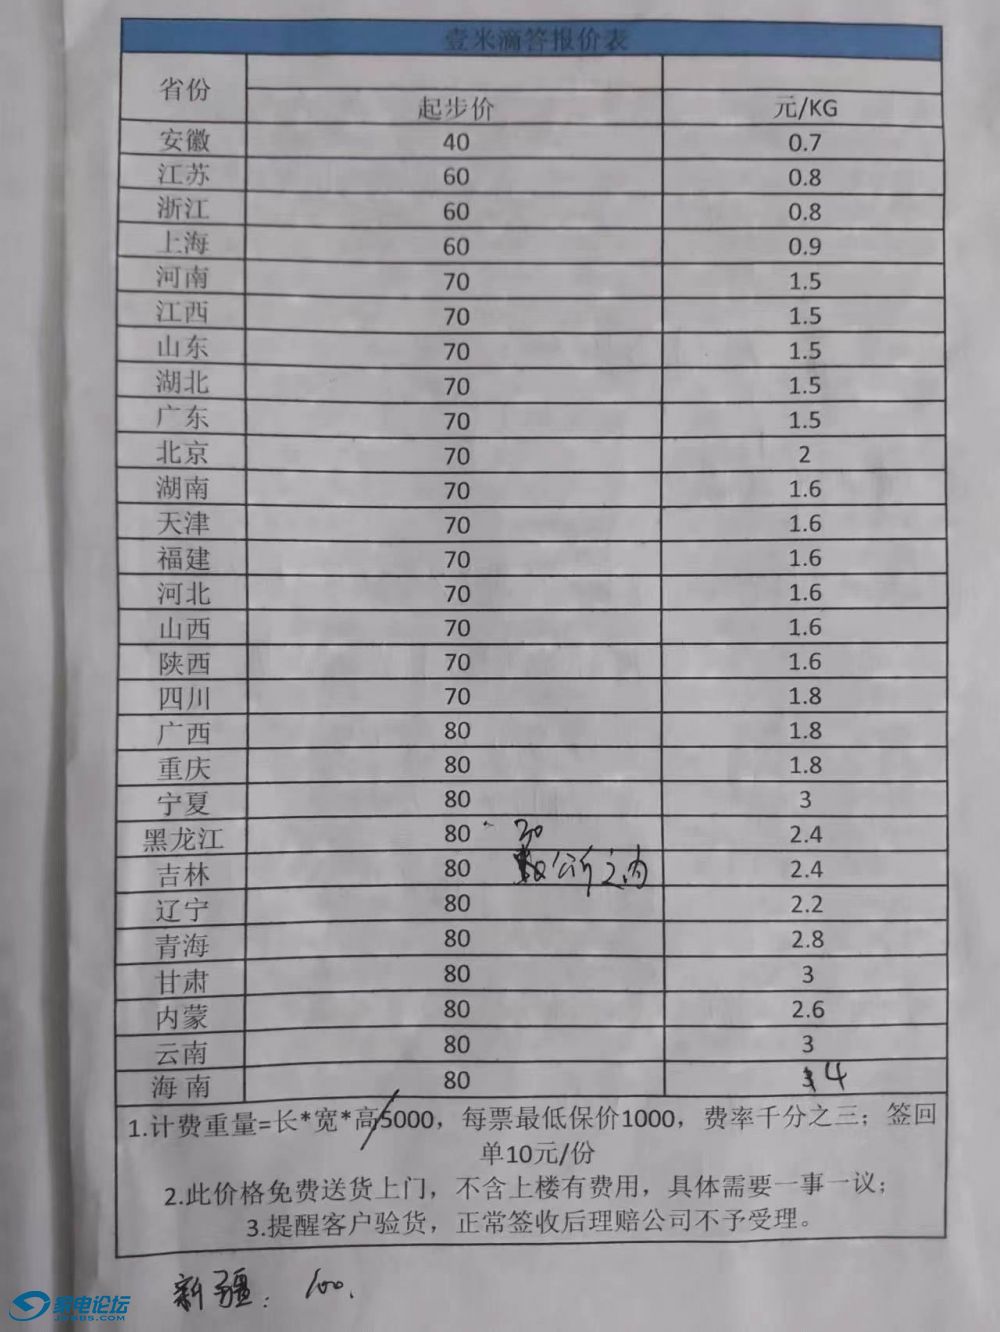 壹米滴答报价表
省份
起步价 元/KG
安徽 40 0.7
江苏 60 0.8
浙江 60 0.8
上海 60 0.9
河南 70 1.5
江西 70 1.5
山东 70 1.5
湖北 70 1.5
广东 70 1.5
北京 70 2
湖南 70 1.6
天津 70 1.6
福建 70 1.6
河北 70 1.6
山西 70 1.6
陕西 70 1.6
四川 70 1.8
广西 80 1.8
重庆 80 1.8
宁夏 80 3
黑龙江 80 30 2.4
吉林 80 公斤之内 2.4
辽宁 80 2.2
青海 80 2.8
甘肃 80 3
内蒙 80 2.6
云南 80 3
海南 80 4
1.计费重量=长*宽*高/5000，每票最低保价1000，费率千分之三；签回
单10元/份
2.此价格免费送货上门，不含上楼有费用，具体需要一事一议；
3.提醒客户验货，正常签收后理赔公司不予受理。
新疆：100.
家电论坛
JDBBS.COM